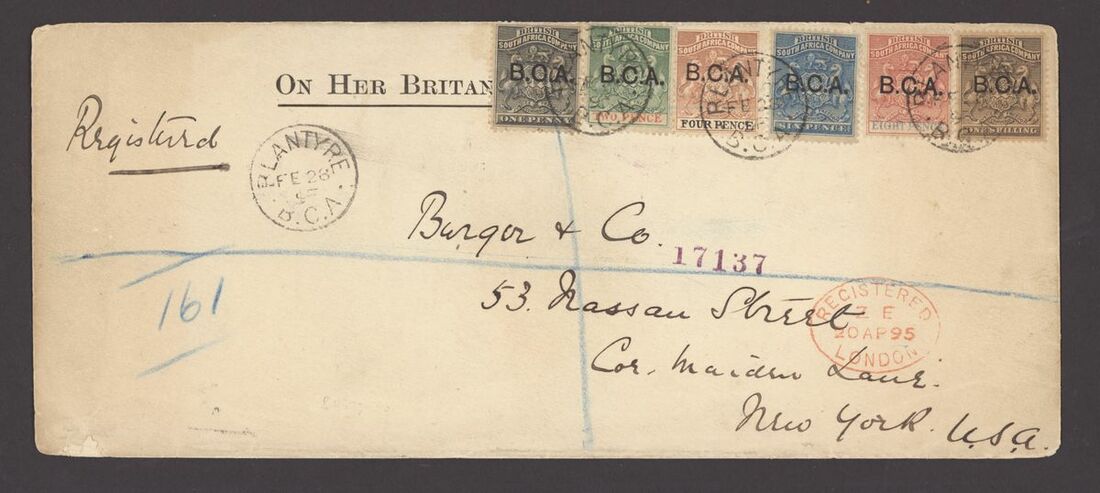 BRITISH SOUTH AFRICA COMPANY B.C.A. ONE PENNY
BRITISH SOUTH AFRICA COMPANY B.C.A. TWO PENCE
BRITISH SOUTH AFRICA COMPANY B.C.A. FOUR PENCE
BRITISH SOUTH AFRICA COMPANY B.C.A. SIX PENCE
BRITISH SOUTH AFRICA COMPANY B.C.A. EIGHT
BRITISH SOUTH AFRICA COMPANY B.C.A. ONE SHILLING
ON HER BRITAN
Registered
BLANTYRE
FE 28
B.C.A.
Burger & Co.
17137
161
53. Nassau Street
REGISTERED
Z E
20 AP 95
LONDON
Cor. Maiden Lane.
New York. U.S.A.